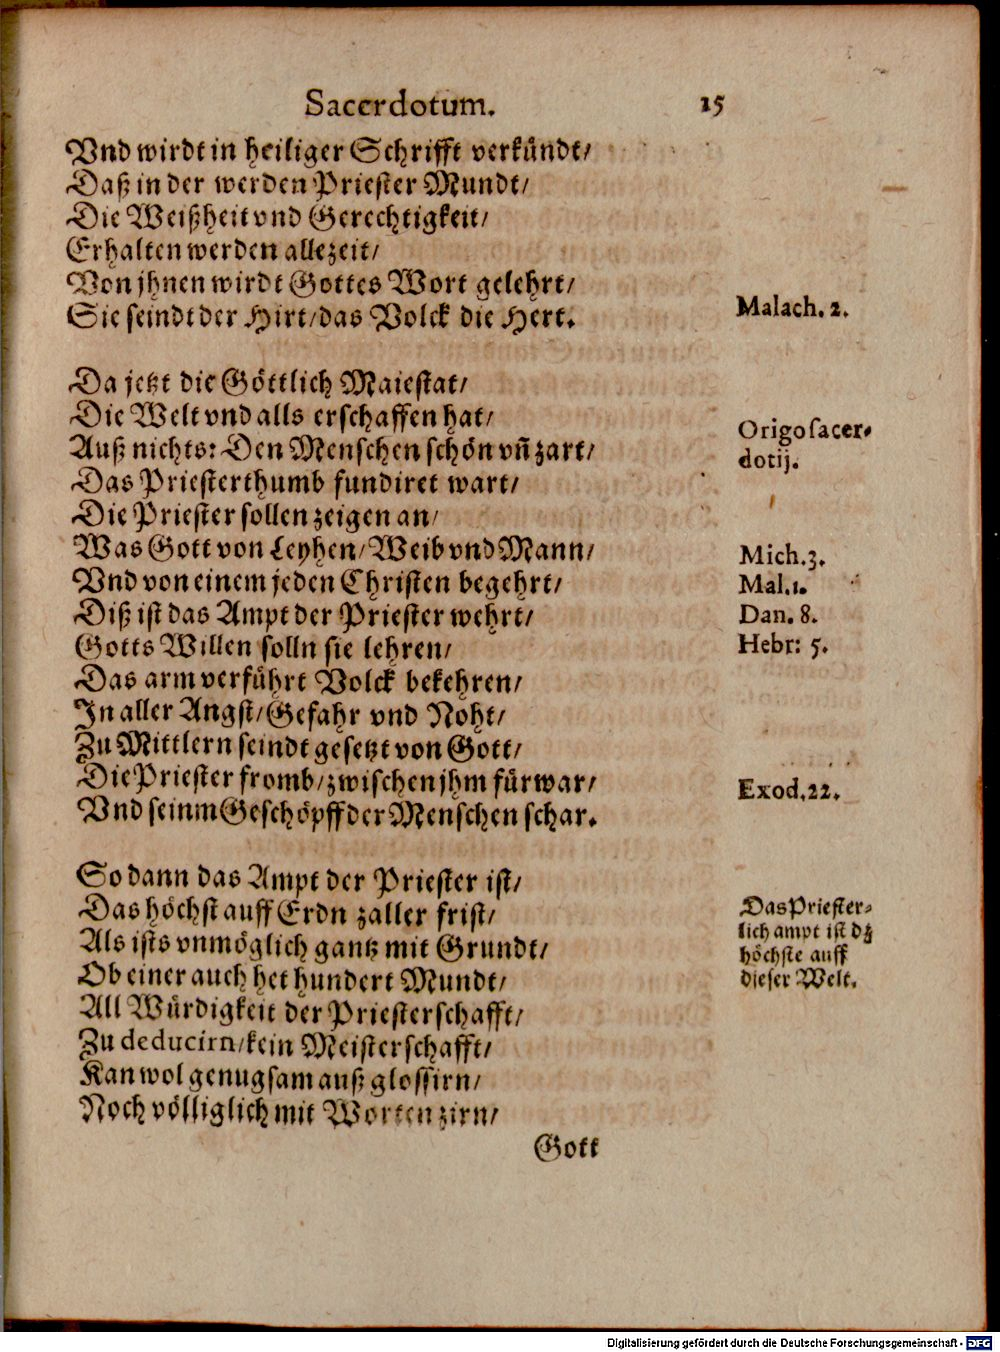 Sacerdotum. 15
Vnd wirdt in heiliger Schrifft verkündt/
Daß in der werden Priester Mundt/
Die Weißheit vnd Gerechtigkeit/
Erhalten werden allezeit/
Von jhnen wirdt Gottes Wort gelehrt/
Sie seindt der Hirt/das Volck die Hert.
Malach. 2.
Da jetzt die Göttlich Maiestat/
Die Welt vnd alls erschaffen hat/
Auß nichts: Den Menschen schön vñ zart/
Das Priesterthumb fundiret wart/
Origo sacer-
dotij.
Die Priester sollen zeigen an/
Was Gott von Leyhen/Weib vnd Mann/
Vnd von einem jeden Christen begehrt/
Diß ist das Ampt der Priester wehrt/
Gotts Willen solln sie lehren/
Mich.3.
Mal.1.
Dan. 8.
Hebr: 5.
Das arm verführt Volck bekehren/
In aller Angst/Gefahr vnd Noht/
Zu Mittlern seindt gesetzt von Gott/
Die Priester fromb/zwischen jhm fürwar/
Vnd seinm Geschöpff der Menschen schar.
Exod.22.
So dann das Ampt der Priester ist/
Das höchst auff Erdn zaller frist/
Als ists vnmöglich gantz mit Grundt/
Ob einer auch het hundert Mundt/
Das Priester-
lich ampt ist dz
höchste auff
dieser Welt.
All Würdigkeit der Priesterschafft/
Zu deducirn/kein Meisterschafft/
Kan wol genugsam auß glossirn/
Noch völliglich mit Worten zirn/
Gott
Digitalisierung gefördert durch die Deutsche Forschungsgemeinschaft - DFG